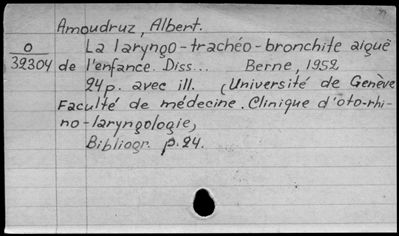 Amoudruz, Albert.
O
39304
La laryngo-trachéo-bronchite aiguë
de l'enfance. Diss... Berne, 1952
24p. avec ill. (Université de Genève
Faculté de médecine. Clinique d'oto-rhi-
no-laryngologie)
Bibliogr. p. 24.